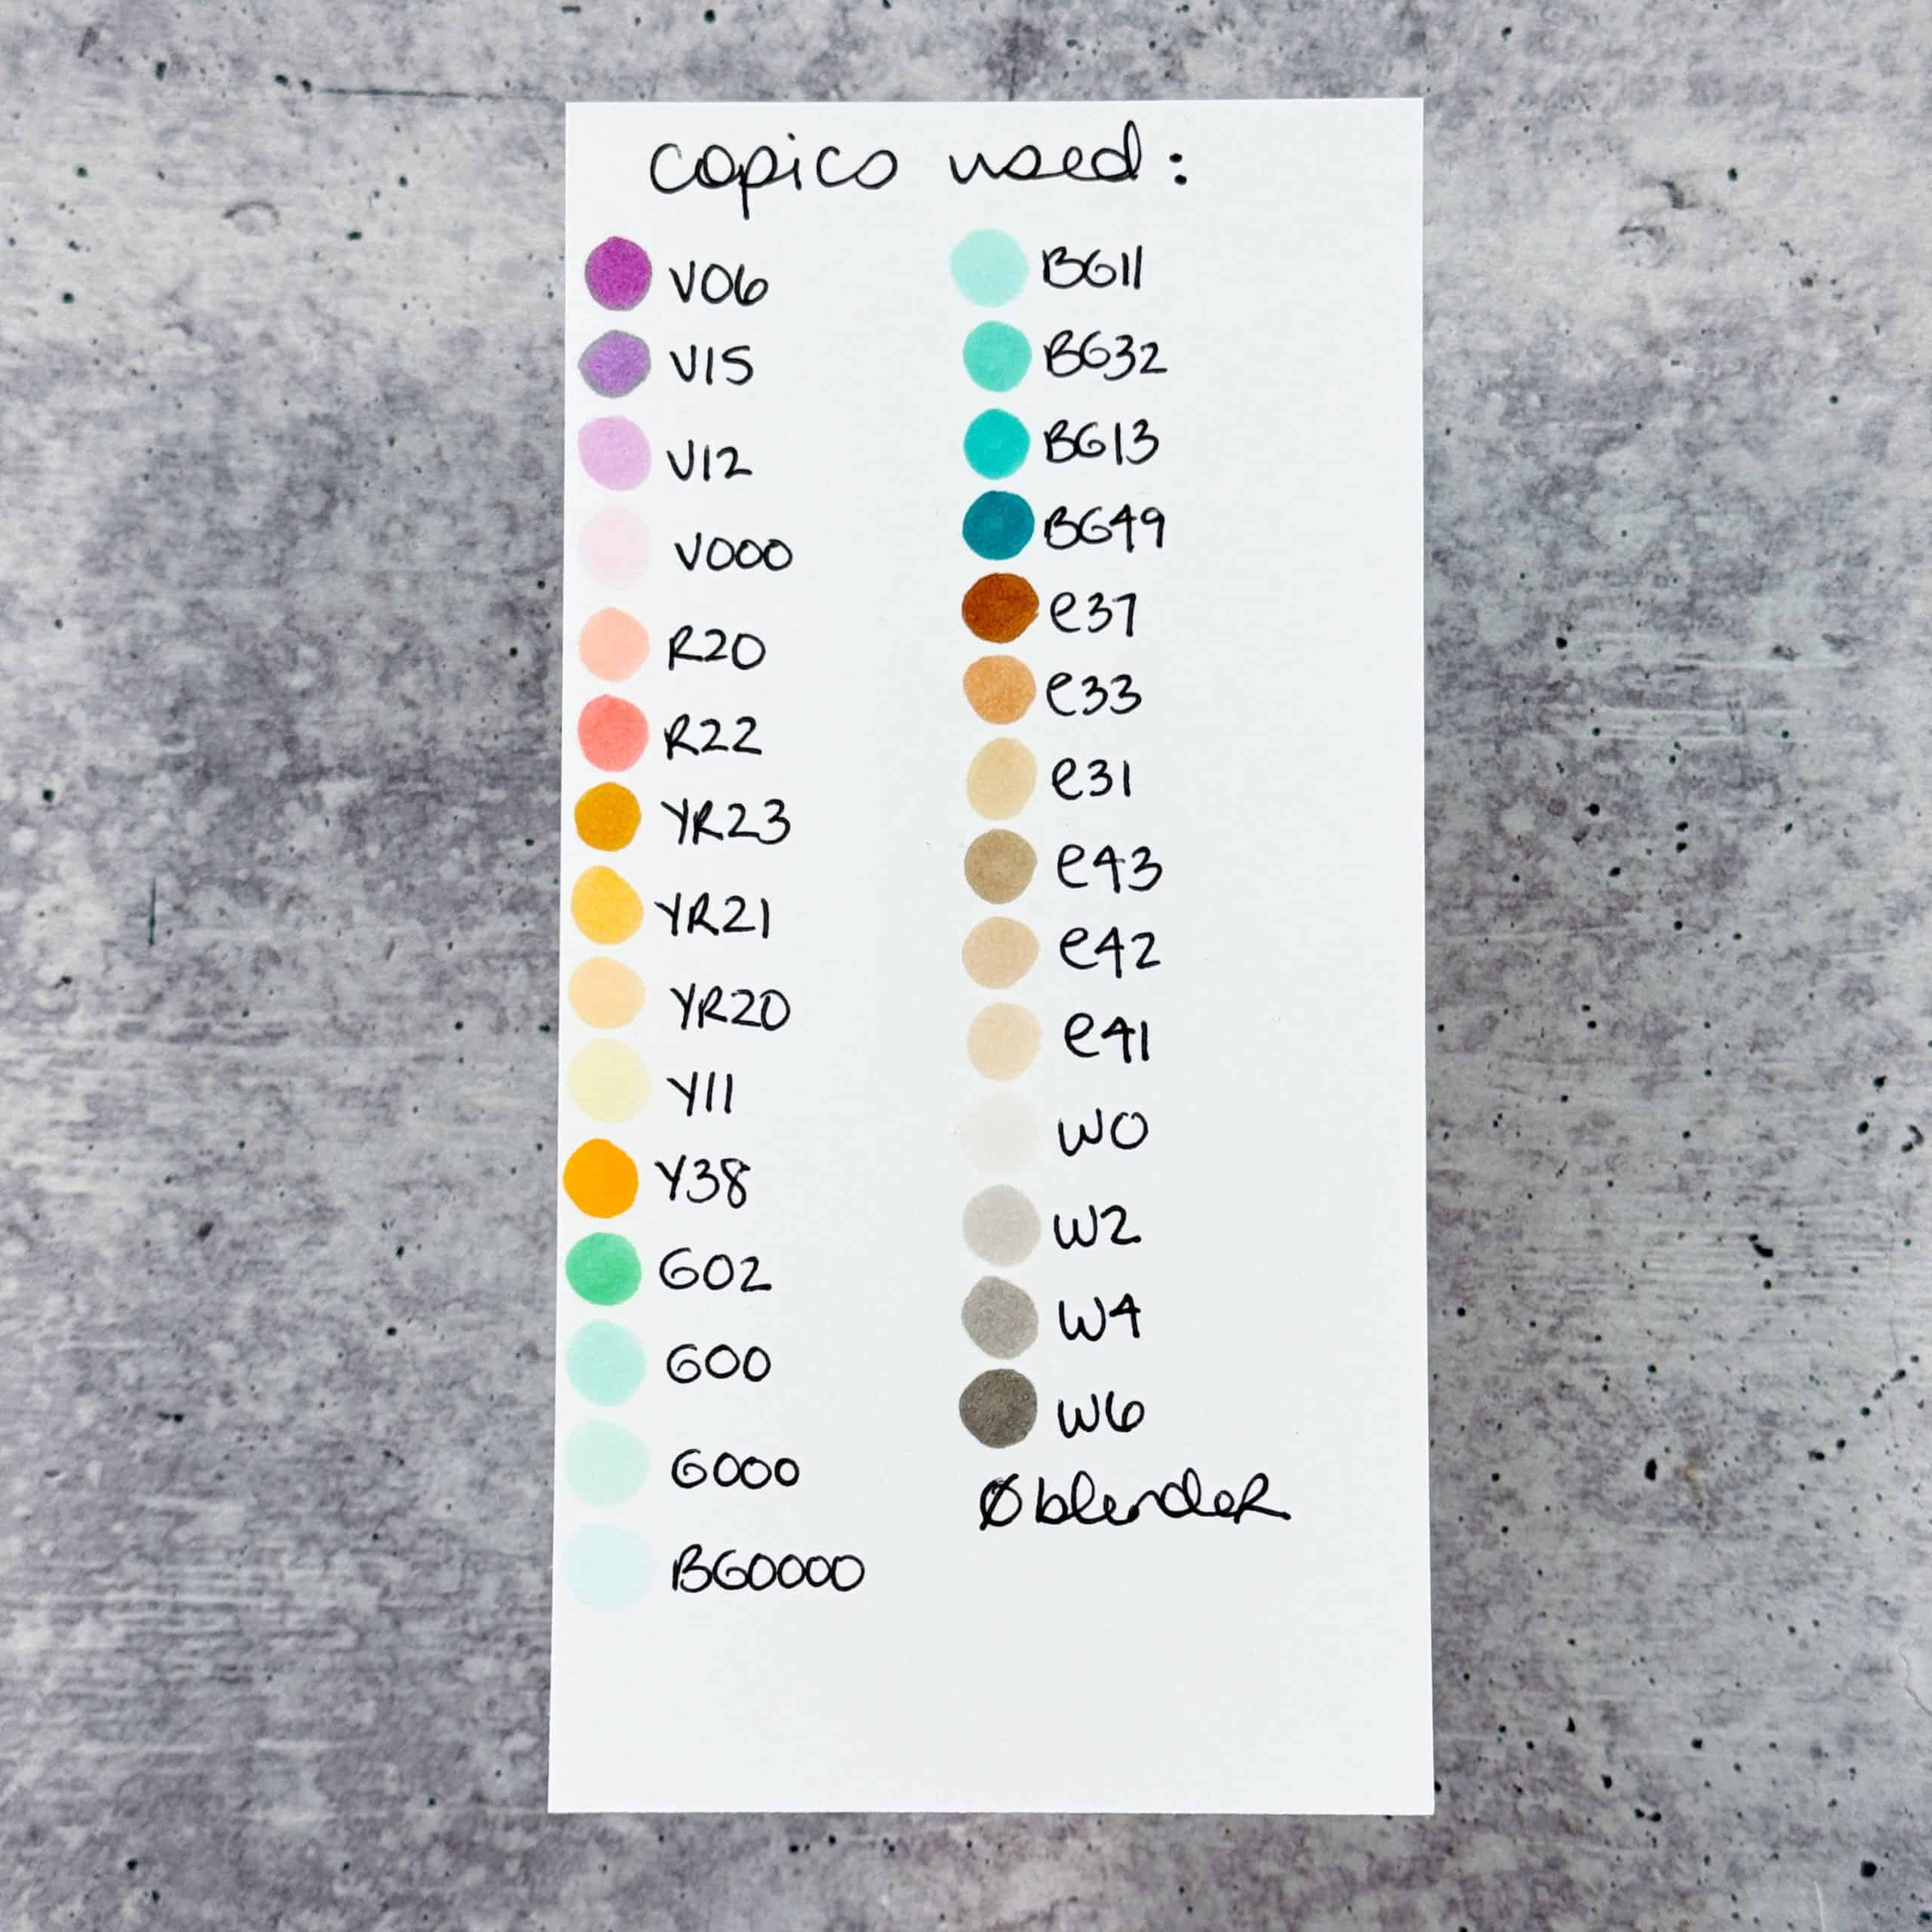 copics used:
V06
V15
V12
V000
R20
R22
YR23
YR21
YR20
Y11
Y38
G02
G00
G000
BG0000
BG11
BG32
BG13
BG49
e37
e33
e31
e43
e42
e41
W0
W2
W4
W6
Ø blender